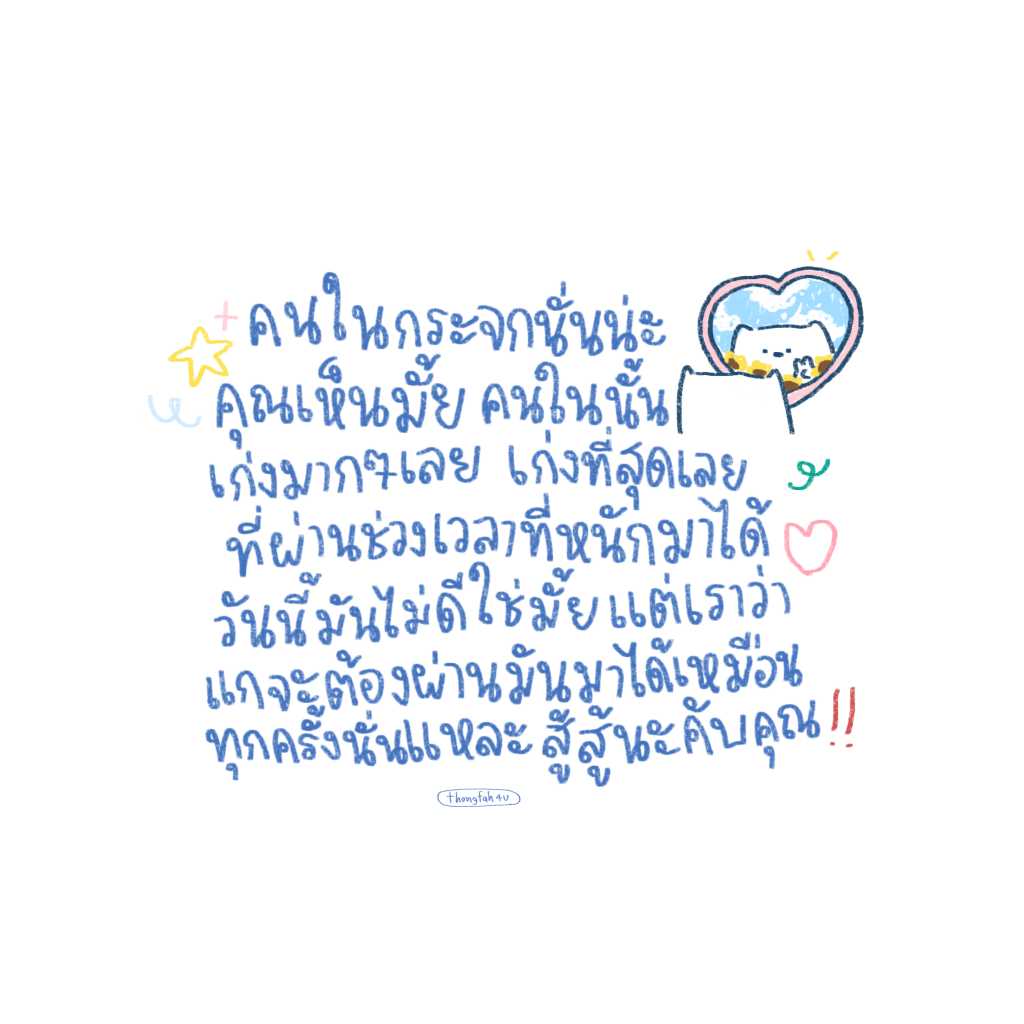 คนในกระจกนั่นน่ะ
คุณเห็นมั้ย คนในนั้น
เก่งมากๆเลย เก่งที่สุดเลย
ที่ผ่านช่วงเวลาที่หนักมาได้
วันนี้มันไม่ดีใช่มั้ย แต่เราว่า
แกจะต้องผ่านมันมาได้เหมือน
ทุกครั้งนั่นแหละ สู้สู้นะคับคุณ!!
thongfah4u